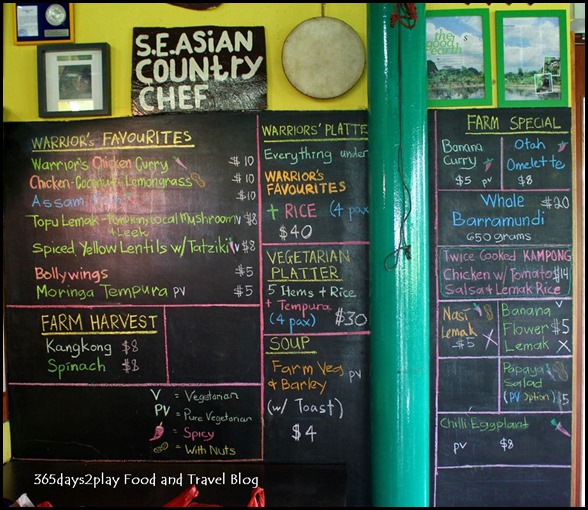 S.E.ASIAN
COUNTRY
CHEF
the
good
earth
WARRIOR'S FAVOURITES
Warrior's Chicken Curry $10
Chicken-Coconut-Lemongrass $10
Assam $10
Topu Lemak - Tumpang Local Mushroom V $8
+ Leek
Spiced Yellow Lentils w/ Tatziki V $8
Bollywings $5
Moringa Tempura PV $5
FARM HARVEST
Kangkong $8
Spinach $8
V = Vegetarian
PV = Pure Vegetarian
= Spicy
= With Nuts
WARRIORS' PLATTE
Everything under
WARRIOR'S
FAVOURITES
+ RICE (4 pax
$40
VEGETARIAN
PLATTER
5 Items + Rice
+ Tempura
(4 pax) $30
SOUP
Farm Veg PV
& Barley
(w/ Toast)
$4
FARM SPECIAL
Banana
Curry
$5 PV
Otah
Omelette
$8
Whole $20
Barramundi
650 grams
Twice Cooked KAMPONG
Chicken w/ Tomato $14
Salsa & Lemak Rice
Nasi
Lemak
$5 X
Banana V
Flower $5
Lemak X
Papaya
Salad
(PV Option) $5
Chilli Eggplant
PV $8
365days2play Food and Travel Blog